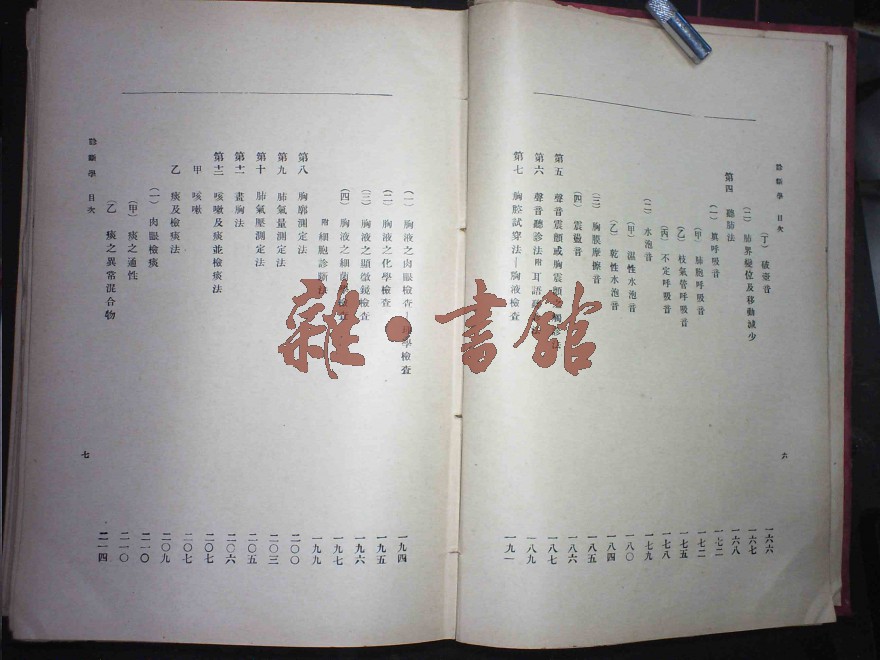 診斷學 目次 六
(丁) 破壺音 一六六
(二) 肺界變位及移動減少 一六七
第四 聽肺法 一六八
(一) 眞呼吸音 一七二
(甲) 肺胞呼吸音 一七二
(乙) 枝氣管呼吸音 一七五
(丙) 不定呼吸音 一七八
(二) 水泡音 一七九
(甲) 濕性水泡音 一八〇
(乙) 乾性水泡音 一八四
(三) 胸膜摩擦音 一八五
(四) 震盪音 一八六
第五 聲音震顫或胸震顫 一八七
第六 聲音聽診法附耳語 一八九
第七 胸腔試穿法—胸液檢查 一九一
(一) 胸液之肉眼檢查—學檢查 一九四
(二) 胸液之化學檢查 一九五
(三) 胸液之顯微鏡檢查 一九六
(四) 胸液之細菌檢查 一九七
附 細胞診斷法 一九九
第八 胸廓測定法 二〇〇
第九 肺氣量測定法 二〇三
第十 肺氣壓測定法 二〇五
第十一 畫胸法 二〇六
第十二 咳嗽及痰並檢痰法 二〇七
甲 咳嗽 二〇七
乙 痰及檢痰法 二〇九
(一) 肉眼檢痰 二一〇
(甲) 痰之通性 二一〇
(乙) 痰之異常混合物 二一四
診斷學 目次 七
雜·書館